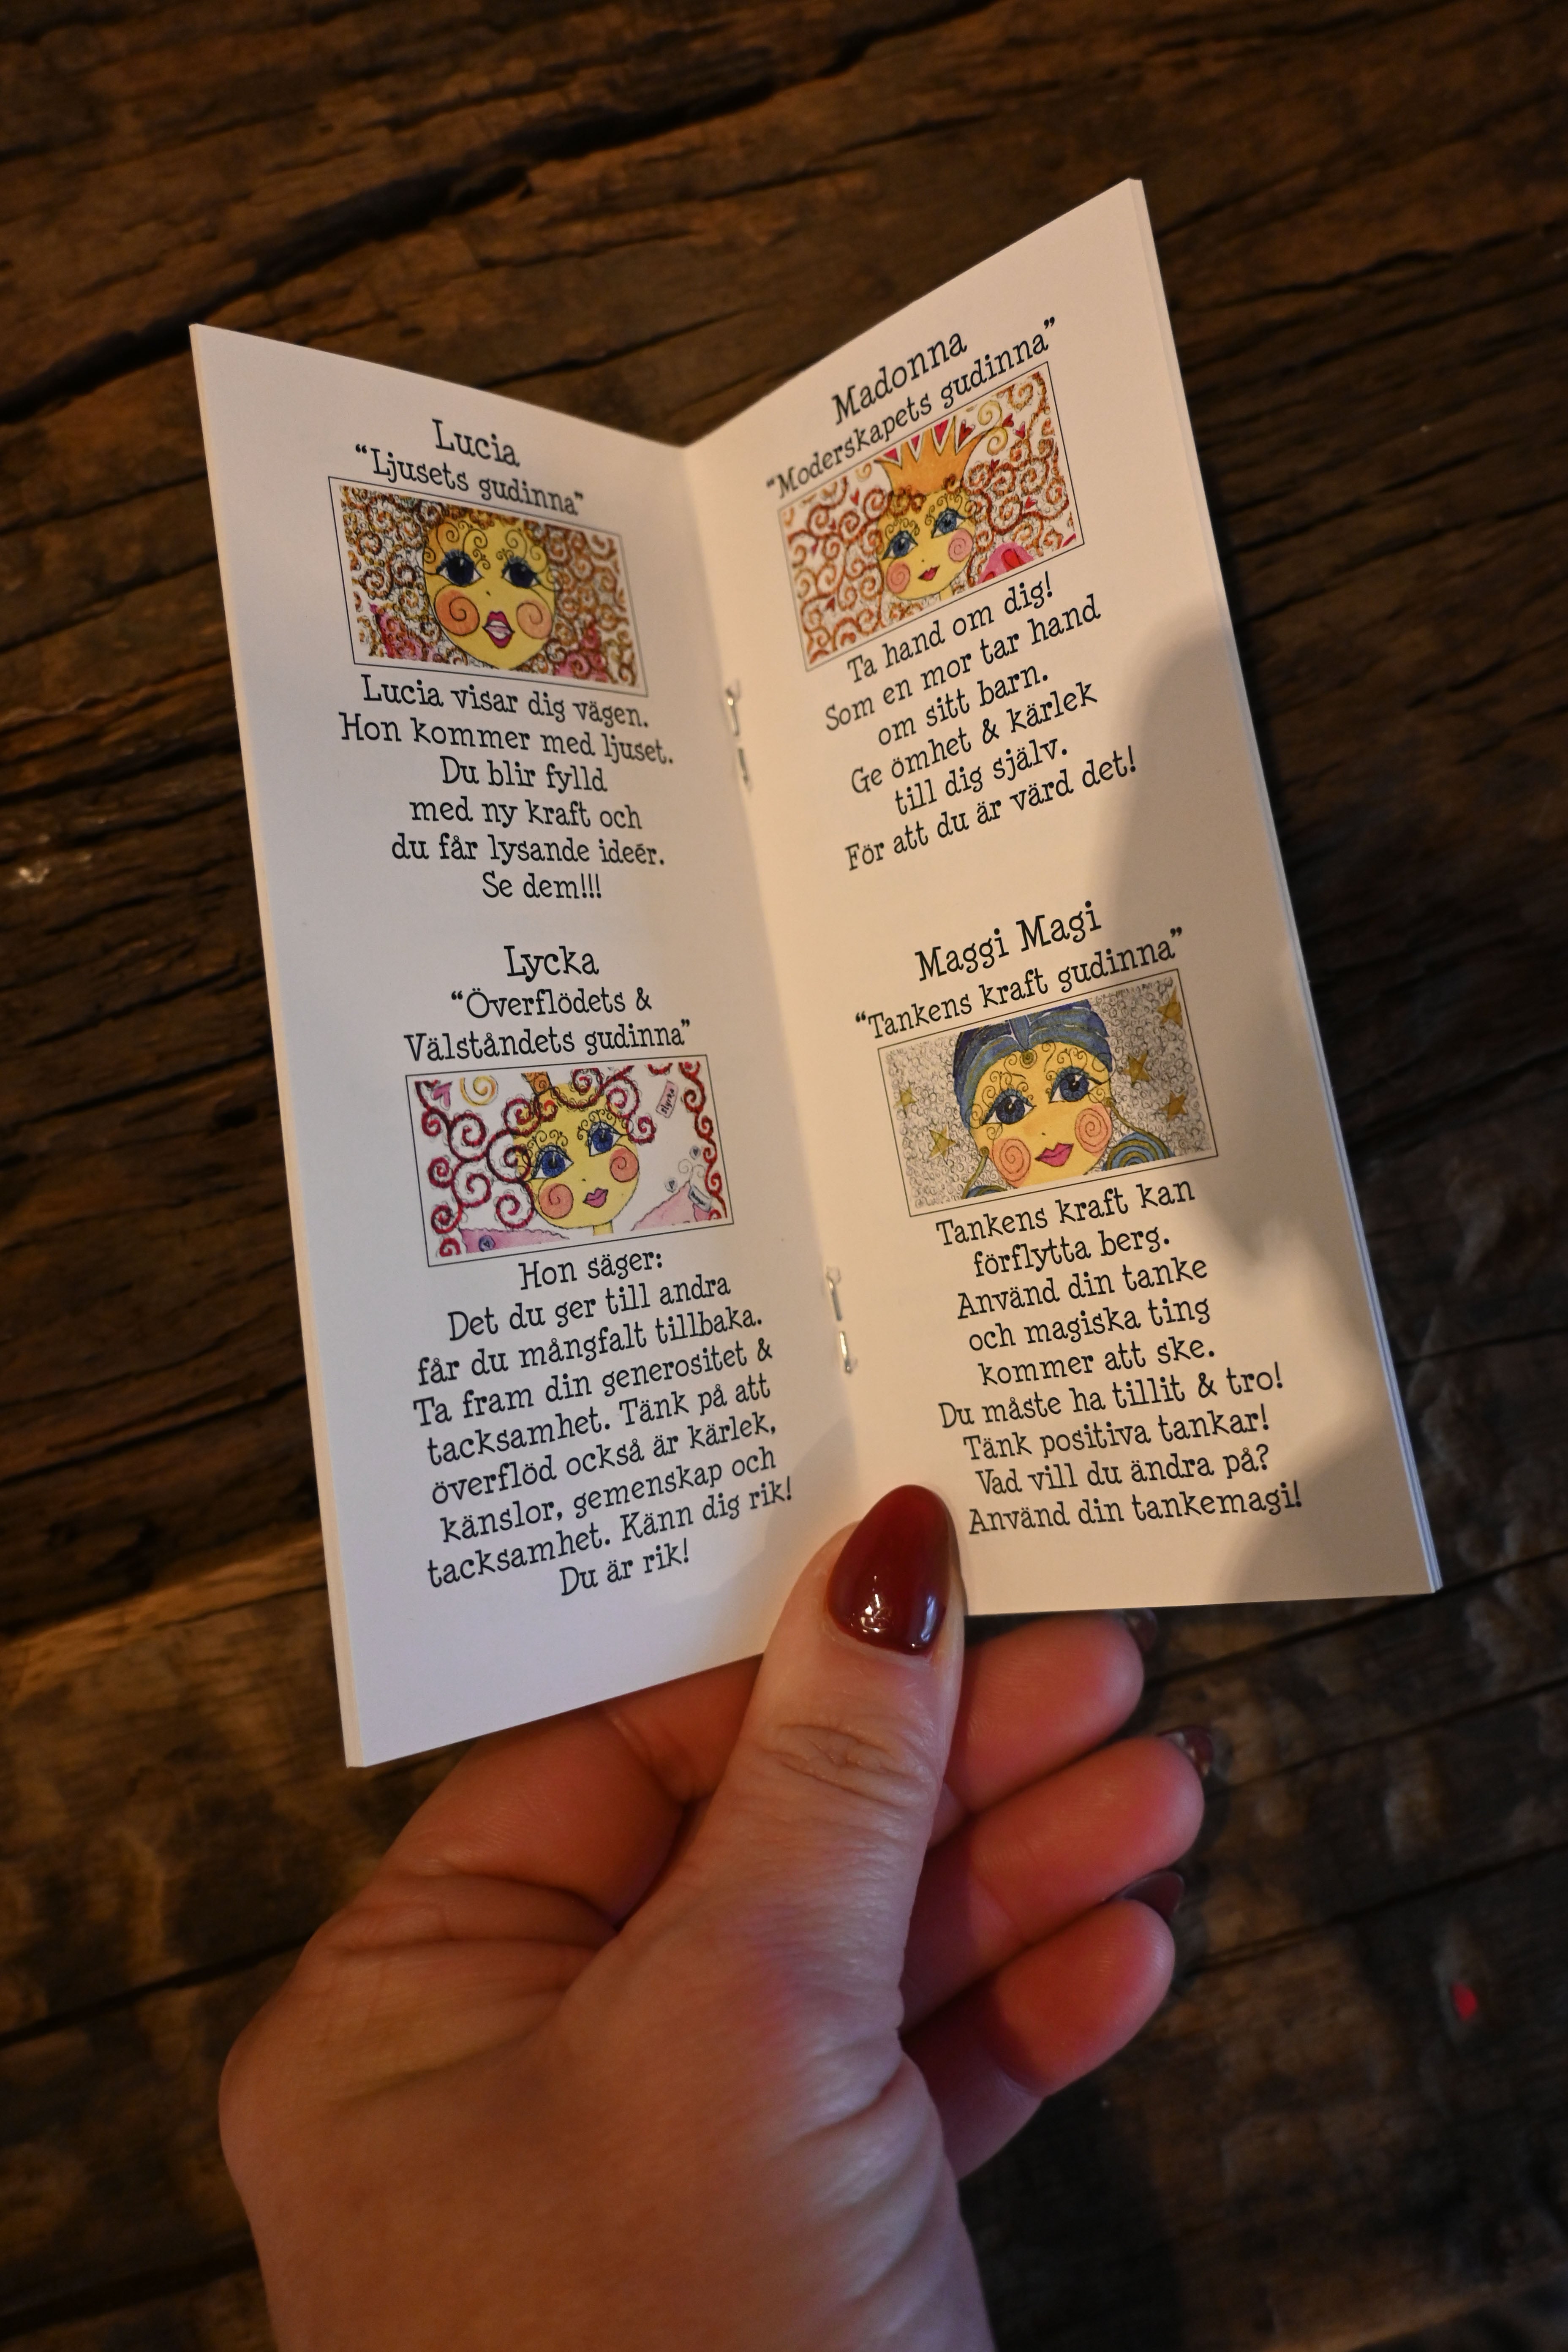 Lucia
“Ljusets gudinna”
Lucia visar dig vägen.
Hon kommer med ljuset.
Du blir fylld
med ny kraft och
du får lysande ideér.
Se dem!!!
Lycka
“Överflödets &
Välståndets gudinna”
Hon säger:
Det du ger till andra
får du mångfalt tillbaka.
Ta fram din generositet &
tacksamhet. Tänk på att
överflöd också är kärlek,
känslor, gemenskap och
tacksamhet. Känn dig rik!
Du är rik!
Madonna
“Moderskapets gudinna”
Ta hand om dig!
Som en mor tar hand
om sitt barn.
Ge ömhet & kärlek
till dig själv.
För att du är värd det!
Maggi Magi
“Tankens kraft gudinna”
Tankens kraft kan
förflytta berg.
Använd din tanke
och magiska ting
kommer att ske.
Du måste ha tillit & tro!
Tänk positiva tankar!
Vad vill du ändra på?
Använd din tankemagi!